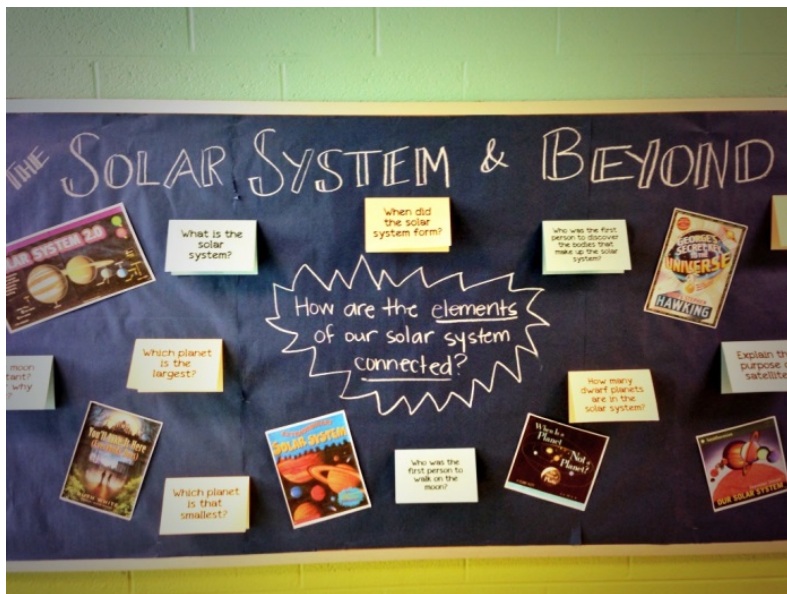 THE SOLAR SYSTEM & BEYOND
SOLAR SYSTEM 2.0
What is the
solar
system?
When did
the solar
system form?
Who was the first
person to discover
the bodies that
make up the solar
system?
GEORGE'S
SECRET
UNIVERSE
HAWKING
How are the elements
of our solar system
connected?
moon
why
Which planet
is the
largest?
How many
dwarf planets
are in the
solar system?
Explain
purpose
satellite
You'll Here
Which planet
is that
smallest?
SOLAR SYSTEM
Who was the
first person to
walk on the
moon?
When Is a
Planet
Not a
Planet?
OUR SOLAR SYSTEM